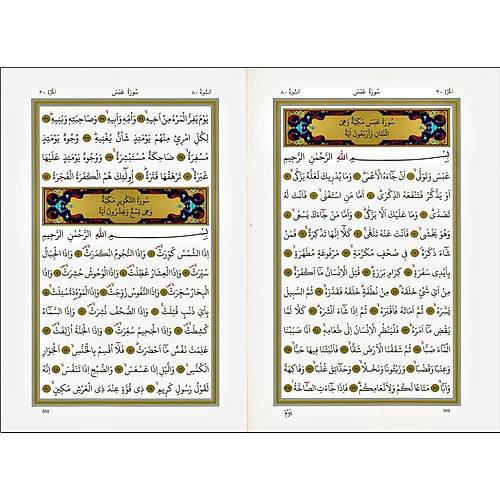 الجزء ٣٠ سورة عبس السورة ٨٠
سورة عبس مكية وهي
اثنتان وأربعون آية
بسم الله الرحمن الرحيم
عبس وتولى ۝ أن جاءه الأعمى ۝ وما يدريك لعله يزكى
أو يذكر فتنفعه الذكرى ۝ أما من استغنى ۝ فأنت له
تصدى ۝ وما عليك ألا يزكى ۝ وأما من جاءك يسعى
وهو يخشى ۝ فأنت عنه تلهى ۝ كلا إنها تذكرة ۝ فمن
شاء ذكره ۝ في صحف مكرمة ۝ مرفوعة مطهرة
بأيدي سفرة ۝ كرام بررة ۝ قتل الإنسان ما أكفره
من أي شيء خلقه ۝ من نطفة خلقه فقدره ۝ ثم السبيل
يسره ۝ ثم أماته فأقبره ۝ ثم إذا شاء أنشره ۝ كلا لما
يقض ما أمره ۝ فلينظر الإنسان إلى طعامه ۝ أنا صببنا
الماء صبا ۝ ثم شققنا الأرض شقا ۝ فأنبتنا فيها حبا
وعنبا وقضبا ۝ وزيتونا ونخلا ۝ وحدائق غلبا ۝ وفاكهة
وأبا ۝ متاعا لكم ولأنعامكم ۝ فإذا جاءت الصاخة
يوم
٥٨٤
الجزء ٣٠ سورة عبس السورة ٨٠
يوم يفر المرء من أخيه ۝ وأمه وأبيه ۝ وصاحبته وبنيه
لكل امرئ منهم يومئذ شأن يغنيه ۝ وجوه يومئذ
مسفرة ۝ ضاحكة مستبشرة ۝ ووجوه يومئذ عليها
غبرة ۝ ترهقها قترة ۝ أولئك هم الكفرة الفجرة
سورة التكوير مكية
وهي تسع وعشرون آية
بسم الله الرحمن الرحيم
إذا الشمس كورت ۝ وإذا النجوم انكدرت ۝ وإذا الجبال
سيرت ۝ وإذا العشار عطلت ۝ وإذا الوحوش حشرت ۝ وإذا
البحار سجرت ۝ وإذا النفوس زوجت ۝ وإذا الموؤدة سئلت
بأي ذنب قتلت ۝ وإذا الصحف نشرت ۝ وإذا السماء
كشطت ۝ وإذا الجحيم سعرت ۝ وإذا الجنة أزلفت
علمت نفس ما أحضرت ۝ فلا أقسم بالخنس ۝ الجوار
الكنس ۝ والليل إذا عسعس ۝ والصبح إذا تنفس ۝ إنه
لقول رسول كريم ۝ ذي قوة عند ذي العرش مكين
٥٨٥